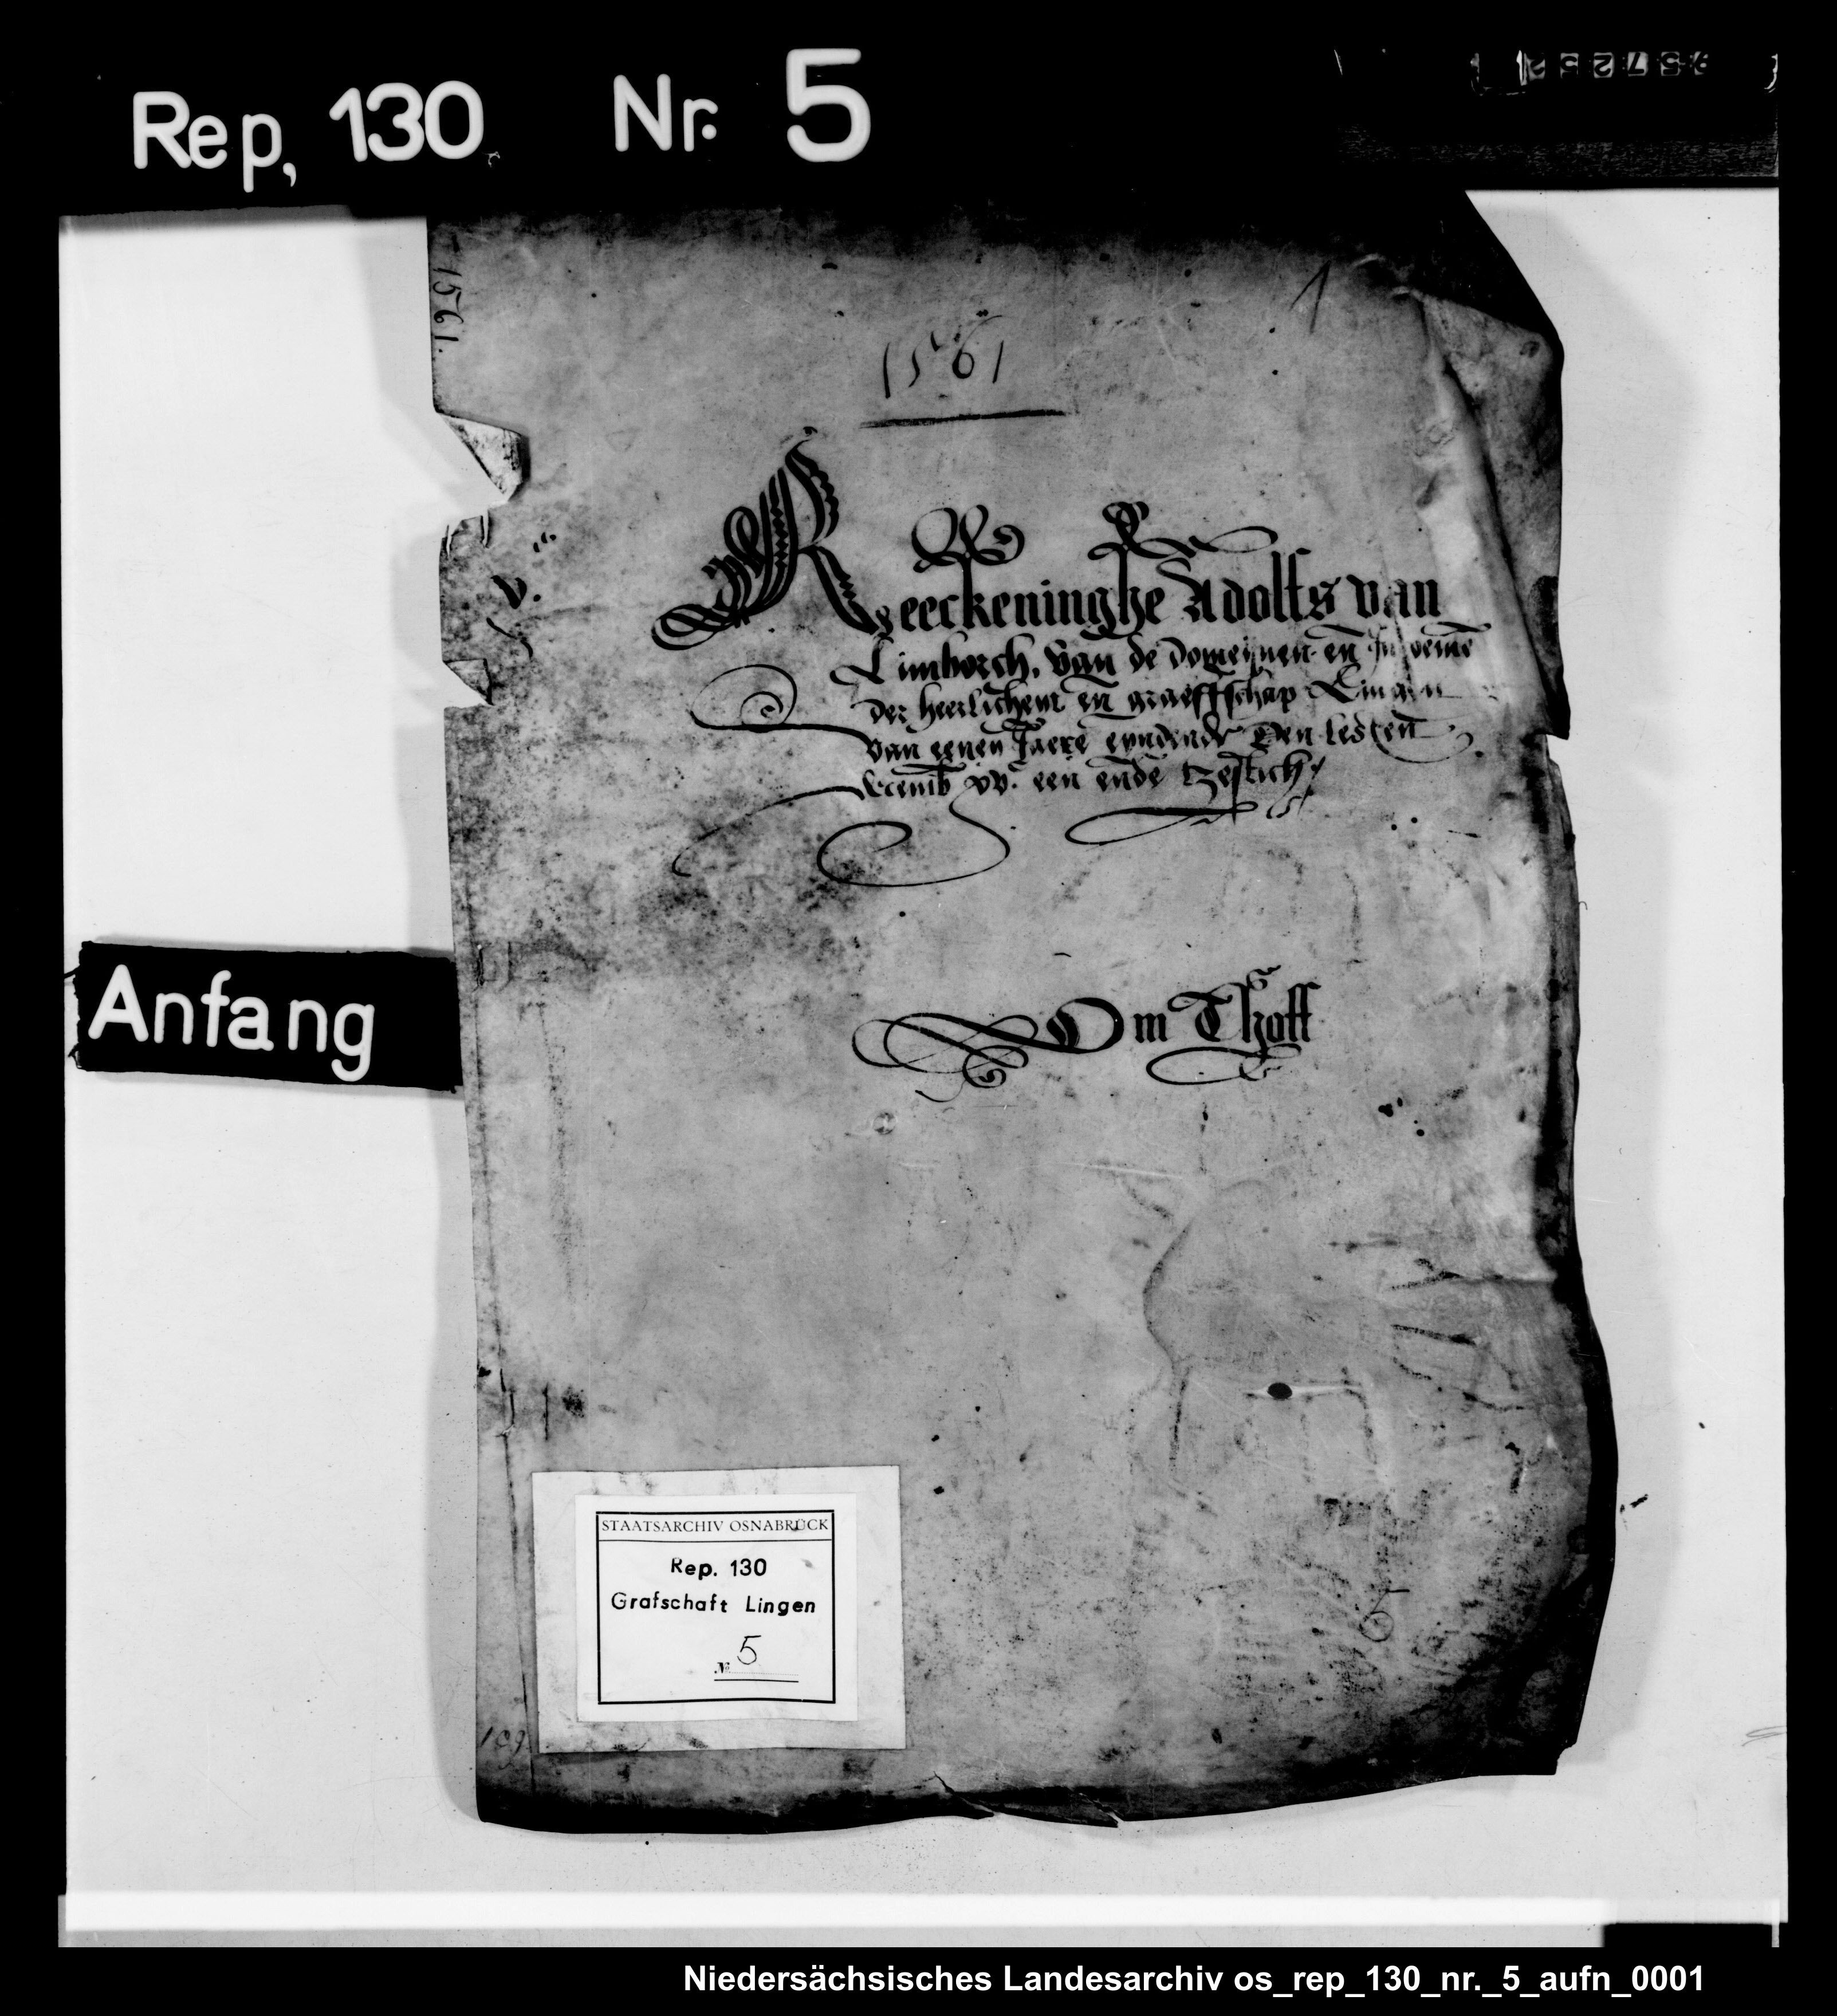 Rep, 130. Nr. 5
1561.
1
1561
v.
Reeckeninghe Adolfs van
Limborch, van de domeijnen en Incoemē
der heerlicheit en graeffschap Lingen
van eenen Jaere eyndende den lesten
decemb xvc een ende tzestich
Anfang
Om Thoff
STAATSARCHIV OSNABRÜCK
Rep. 130
Grafschaft Lingen
№ 5
6
109
Niedersächsisches Landesarchiv os_rep_130_nr._5_aufn_0001